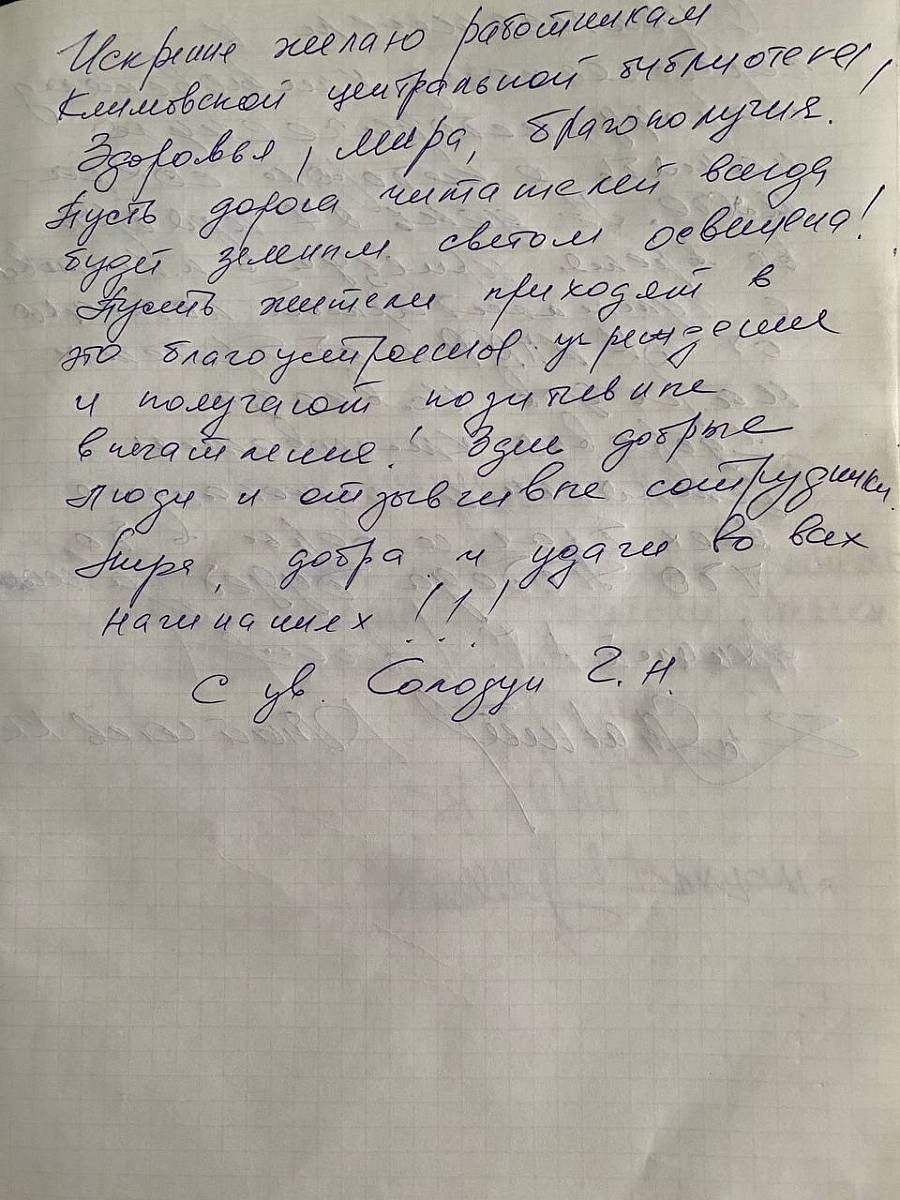 Искренне желаю работникам
Климовской центральной библиотеки,
Здоровья, мира, благополучия.
Пусть дорога читателей всегда
будет зеленым светом освещена!
Пусть жители приходят в
это благоустроенное учреждение
и получают позитивные
впечатления! Здесь добрые
люди и отзывчивые сотрудники.
Мира, добра и удачи во всех
начинаниях!!!
С ув. Солодун Г.Н.